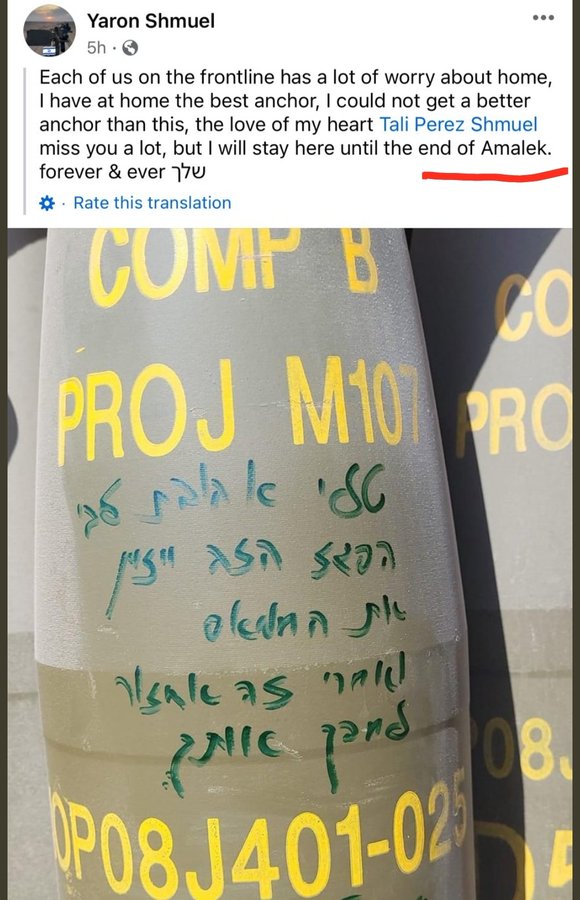 Yaron Shmuel
5h ·
Each of us on the frontline has a lot of worry about home,
I have at home the best anchor, I could not get a better
anchor than this, the love of my heart Tali Perez Shmuel
miss you a lot, but I will stay here until the end of Amalek.
forever & ever שלך
· Rate this translation
COMP B
PROJ M107
טלי אהבת לבי
הפגז הזה ייזיין
את החמאס
ואחרי זה אחזור
לחבק אותך
OP08J401-025
CO
PRO
08J